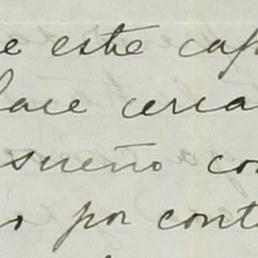 e este caf
lace cerca
sueño co
o por cont